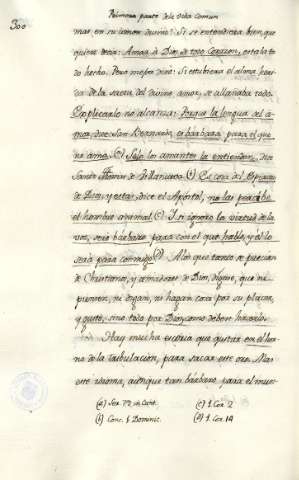 300
Primera parte de la Vida Comun
mar en su amor divino! Si se entendiera bien, que
quiere decir: Amar à Dios de todo Corazon, estaba to
do hecho. Pero mejor diré: Si estubiera el alma heri
da de la saeta del divino amor, se allanaba todo.
Explicarlo no alcanza: Porque la lengua del a-
mor, dice San Bernardo, es barbara para el que
no ama. (a) Solo los amantes la entienden, dice
Santo Thomas de Villanueva. (b) Es cosa del Espiritu
de Dios, y estas, dice el Apóstol, no las percibe
el hombre animal. (c) I si ignoro la virtud de la
voz, seré bárbaro para con el que hablo, y él lo
será para conmigo. (d) A los que tanto se precian
de Christianos, y amadores de Dios, digoles, que ni
piensen, ni digan, ni hagan cosa por su placer,
y gusto, sino todo por Dios, como deben hacerlo.
Hay mucha escoria que quitar en el hor
no de la tribulacion, para sacar este oro. Mas
este idioma, aunque tan bárbaro para el mun-
(a) Ser. 79. in Cant.
(b) Conc. 1 Dominic.
(c) 1. Cor. 2
(d) 1. Cor. 14